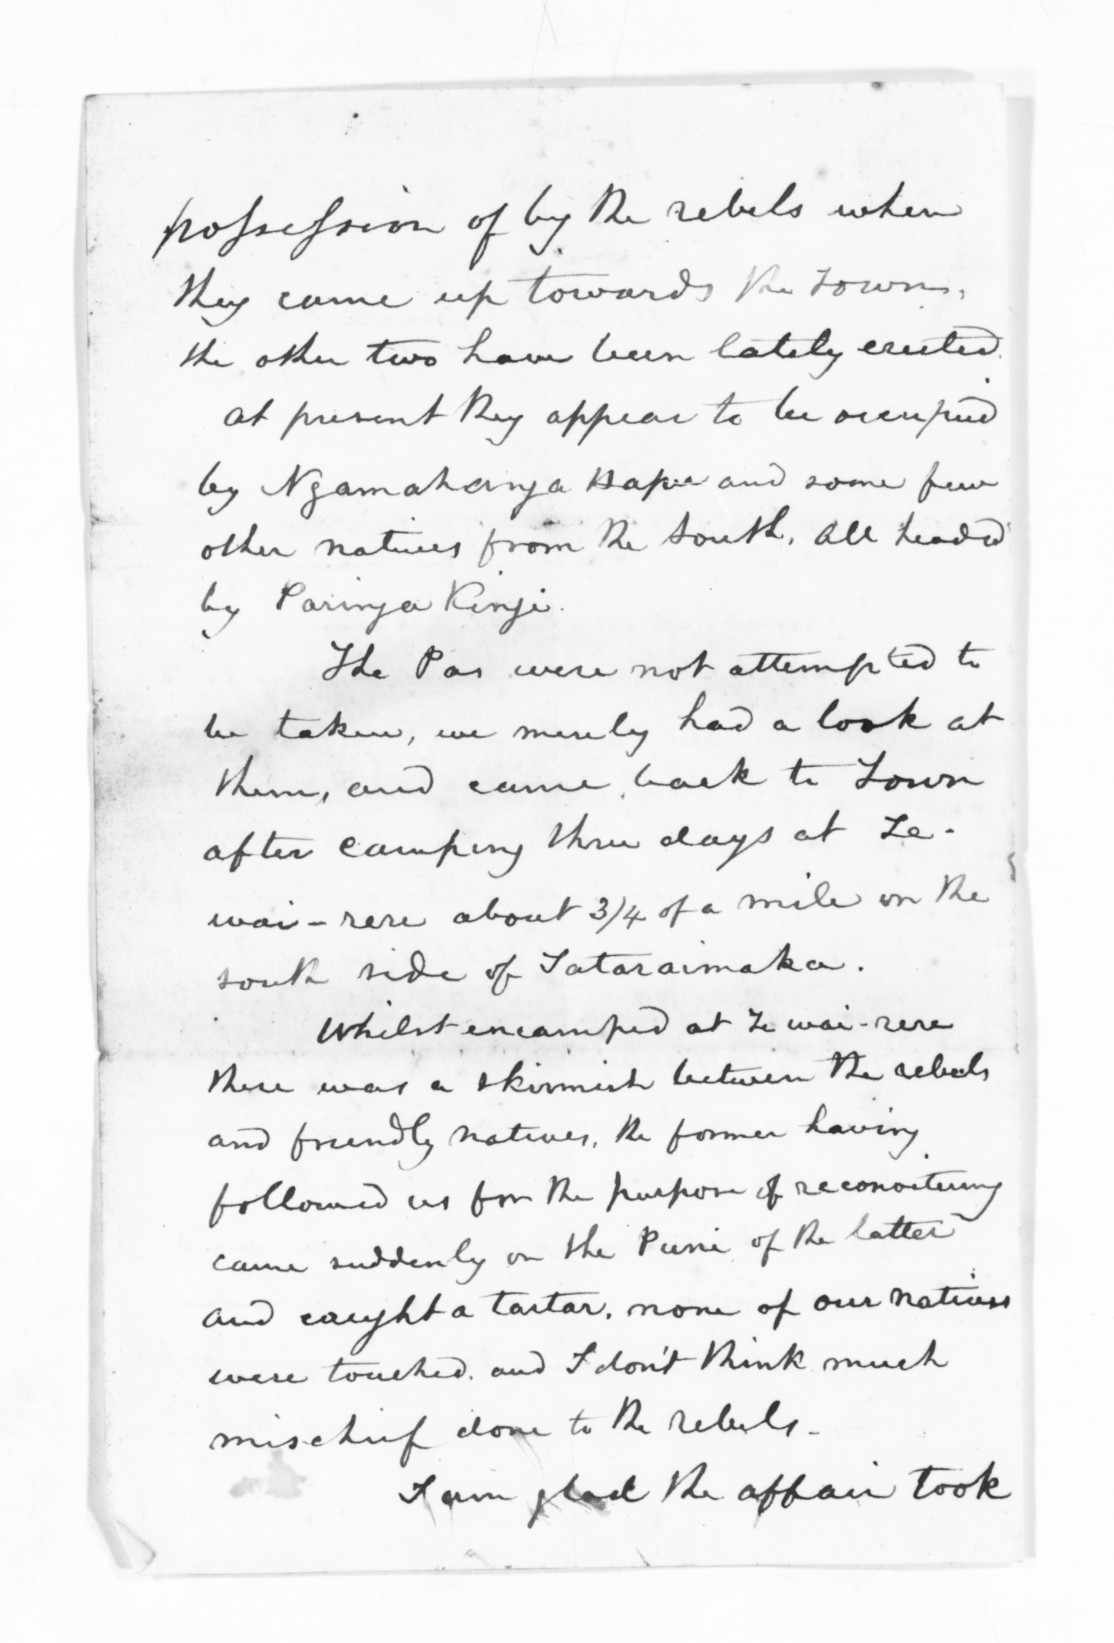 possession of by the rebels when
they came up towards the Town,
the other two have been lately erected.
at present they appear to be occupied
by Ngamahanga Hapu and some few
other natives from the South. All headed
by Paringa Kingi.
The Pas were not attempted to
be taken, we merely had a look at
them, and came back to Town
after camping three days at Te-
wai-rere about 3/4 of a mile on the
south side of Tataraimaka.
Whilst encamped at Te wai-rere
there was a skirmish between the rebels
and friendly natives, the former having
followed us for the purpose of reconoitering
came suddenly on the Puni of the latter
and caught a tartar. none of our natives
were touched. and I don't think much
mischief done to the rebels.
I am glad the affair took